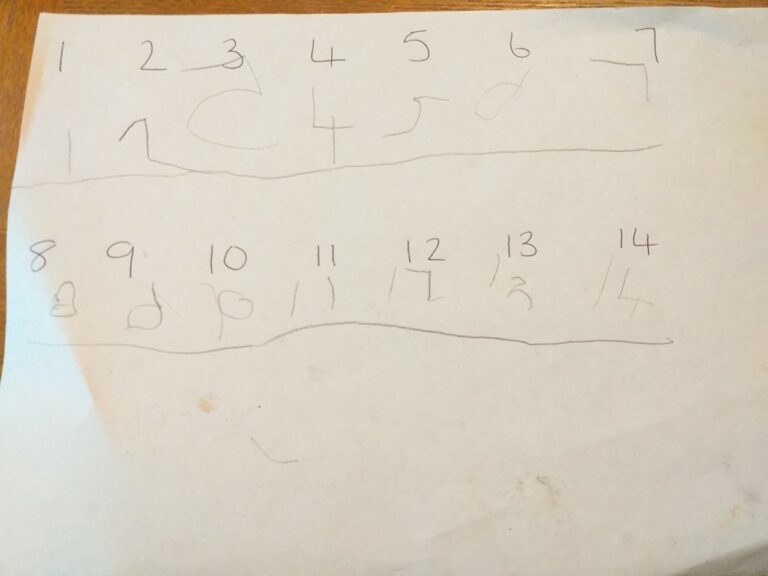 1 2 3 4 5 6 7
1 2 4 5 7
8 9 10 11 12 13 14
8 10 11 12 13 14